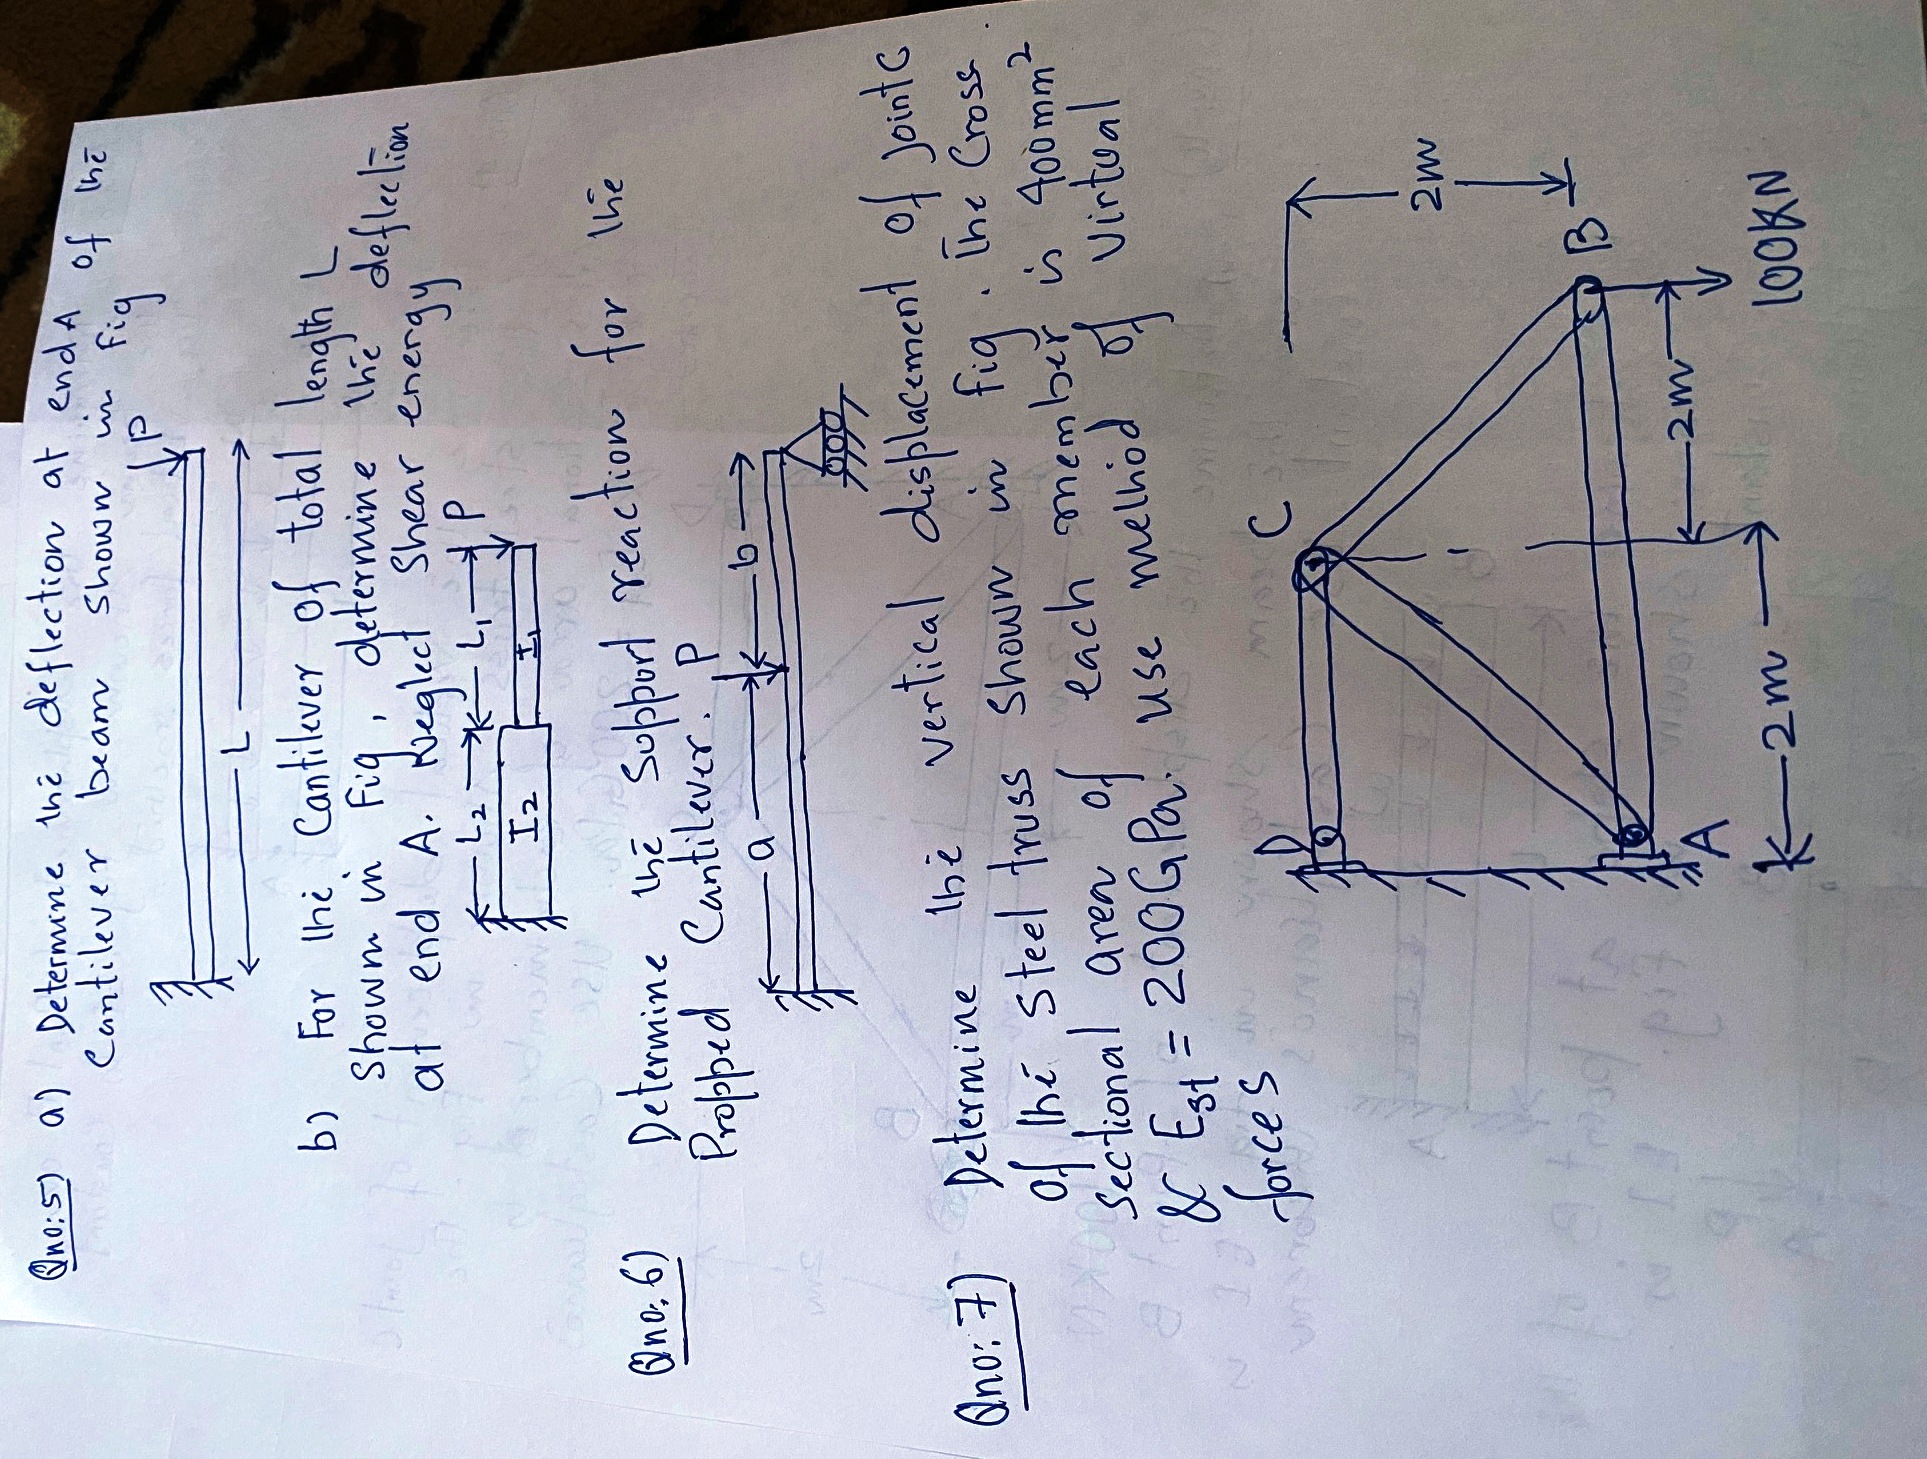 Qno:5) a) Determine the deflection at end A of the
Cantilever beam shown in Fig
P
L
b) For the Cantilever of total length L
shown in Fig, determine the deflection
at end A. Neglect Shear energy
L2 L1 P
I2 I1
Qno:6) Determine the Support reaction for the
Propped Cantilever.
P
a b
Qno:7) Determine the vertical displacement of joint C
of the Steel truss shown in fig. The Cross
sectional area of each member is 400mm²
& Est = 200GPa. use method of virtual
forces
D C
2m
A B
2m
2m
100KN